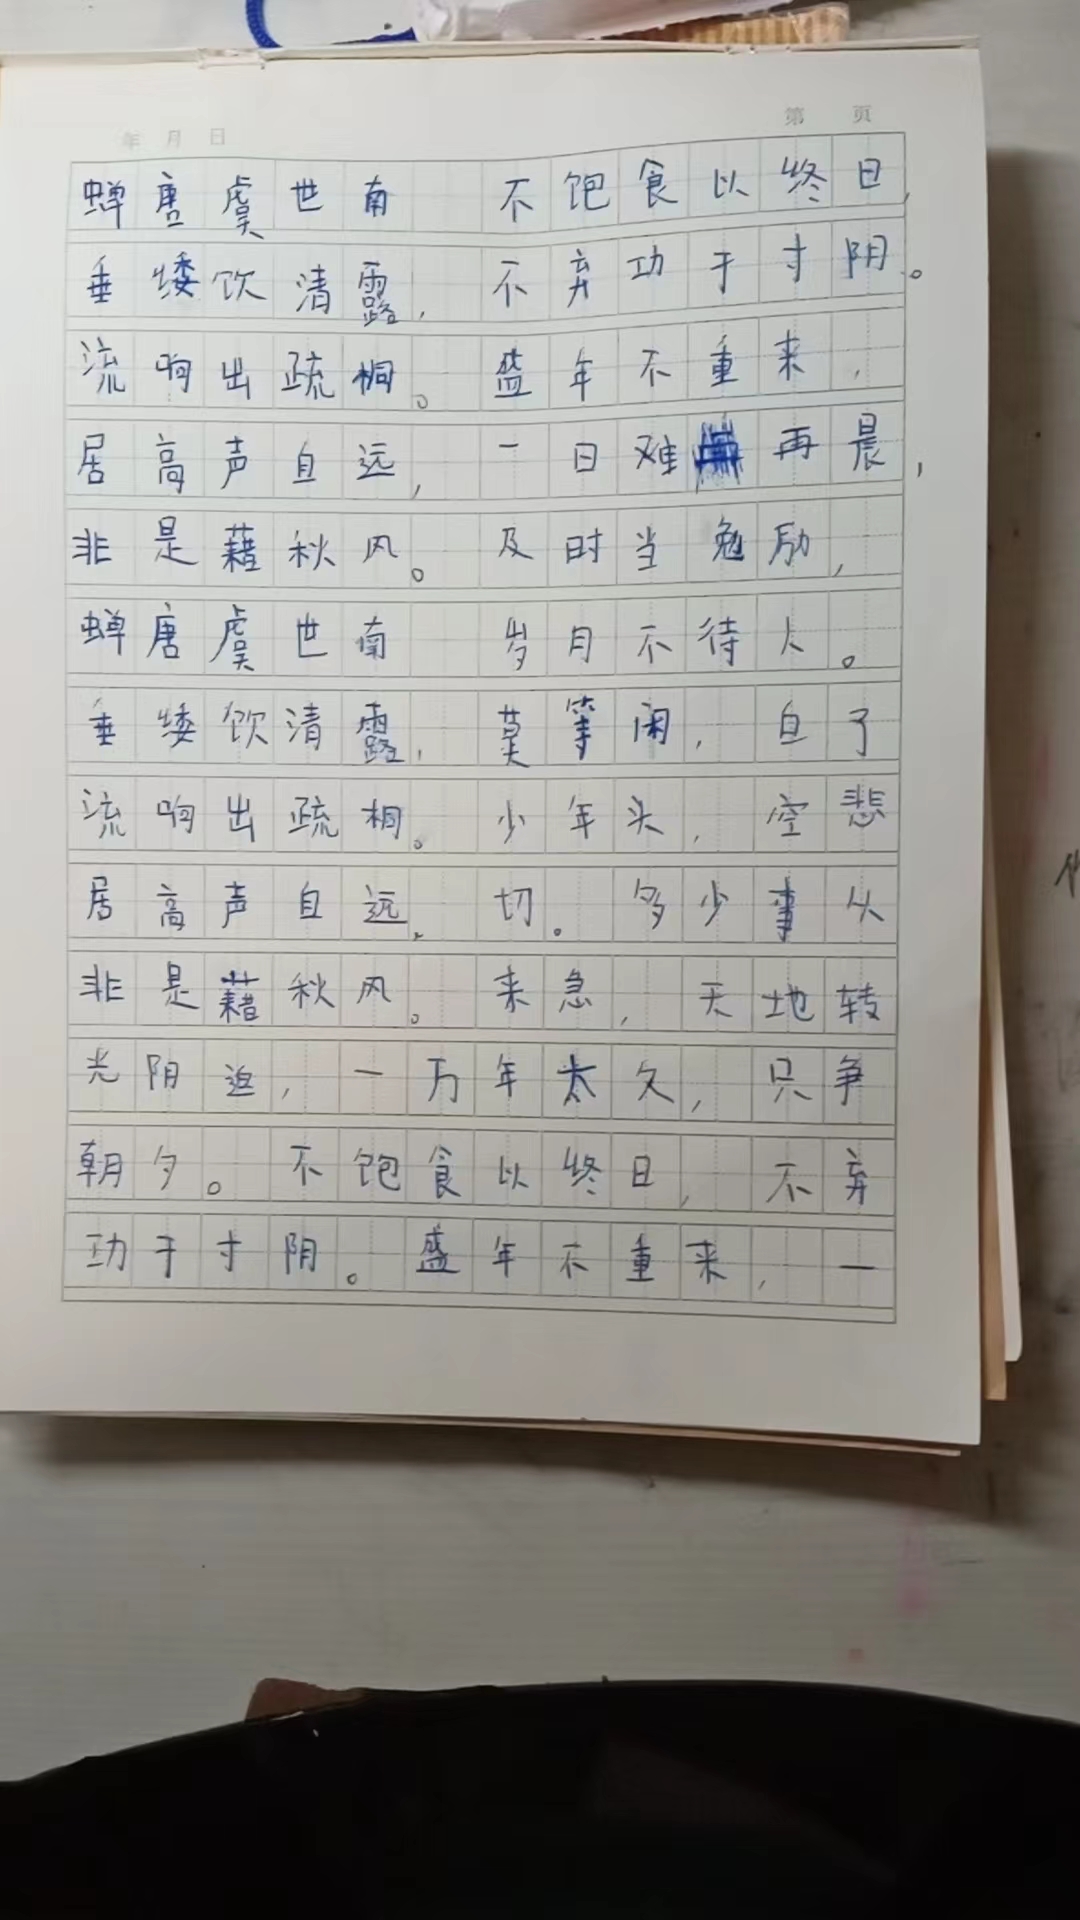 年 月 日 第 页
蝉唐虞世南 不饱食以终日,
垂矮饮清露, 不弃功于寸阴。
流响出疏桐。盛年不重来,
居高声自远, 一日难再晨,
非是藉秋风。及时当勉励,
蝉唐虞世南 岁月不待人。
垂矮饮清露, 莫等闲, 白了
流响出疏桐。少年头, 空悲
居高声自远, 切。多少事从
非是藉秋风。来急, 天地转
光阴迫, 一万年太久, 只争
朝夕。不饱食以终日, 不弃
功于寸阴。盛年不重来, 一